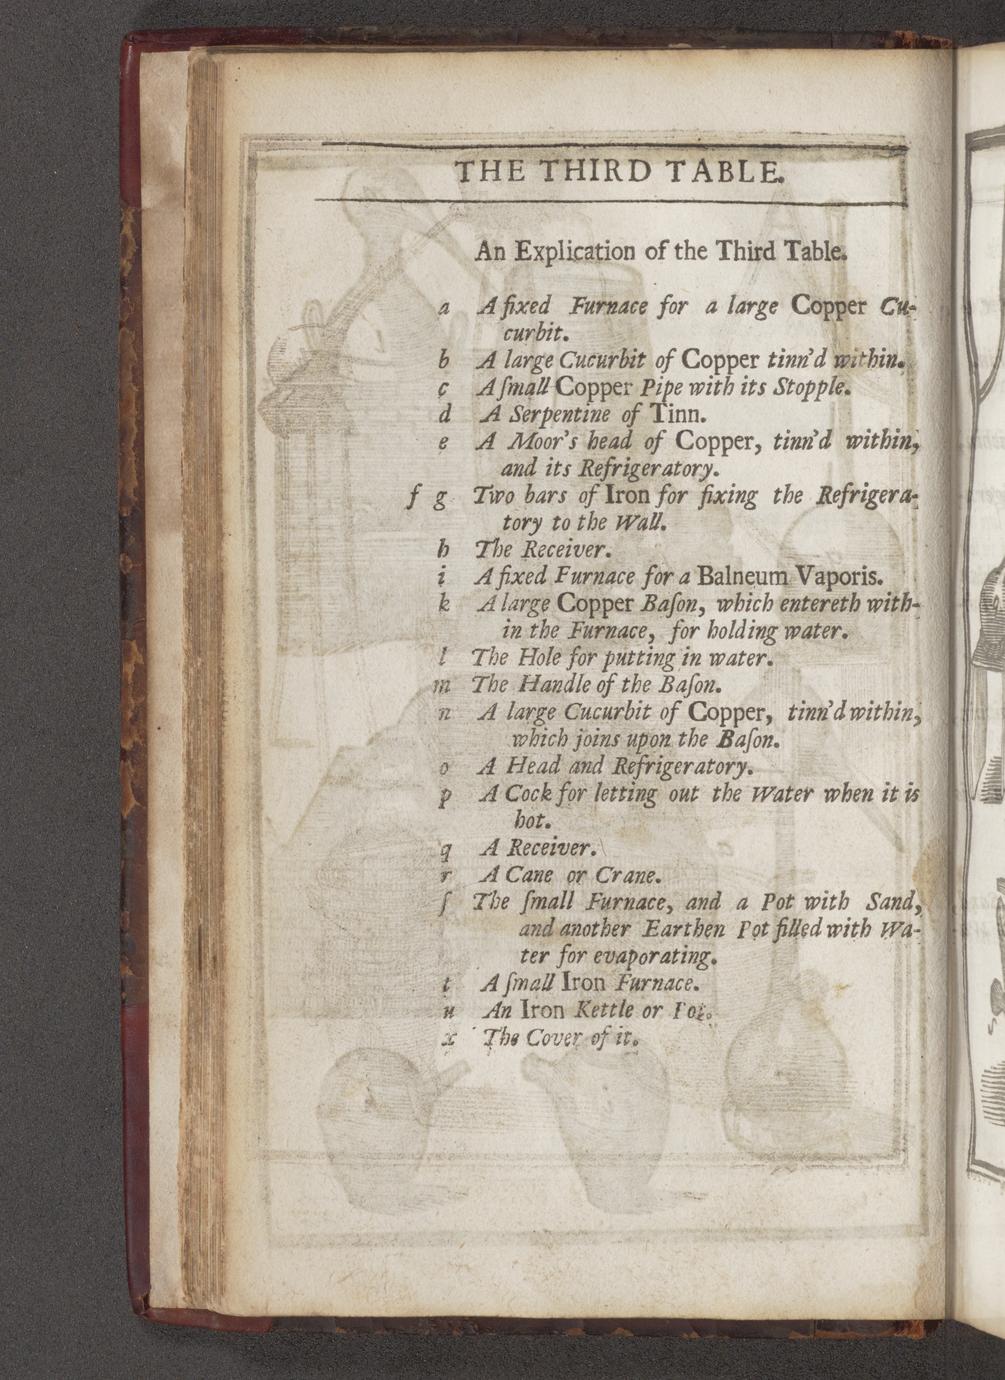 THE THIRD TABLE.
An Explication of the Third Table.
a A fixed Furnace for a large Copper Cu-
curbit.
b A large Cucurbit of Copper tinn'd within.
c A ſmall Copper Pipe with its Stopple.
d A Serpentine of Tinn.
e A Moor's head of Copper, tinn'd within,
and its Refrigeratory.
f g Two bars of Iron for fixing the Refrigera-
tory to the Wall.
h The Receiver.
i A fixed Furnace for a Balneum Vaporis.
k A large Copper Baſon, which entereth with-
in the Furnace, for holding water.
l The Hole for putting in water.
m The Handle of the Baſon.
n A large Cucurbit of Copper, tinn'd within,
which joins upon the Baſon.
o A Head and Refrigeratory.
p A Cock for letting out the Water when it is
hot.
q A Receiver.
r A Cane or Crane.
ſ The ſmall Furnace, and a Pot with Sand,
and another Earthen Pot filled with Wa-
ter for evaporating.
t A ſmall Iron Furnace.
u An Iron Kettle or Pot.
x The Cover of it.